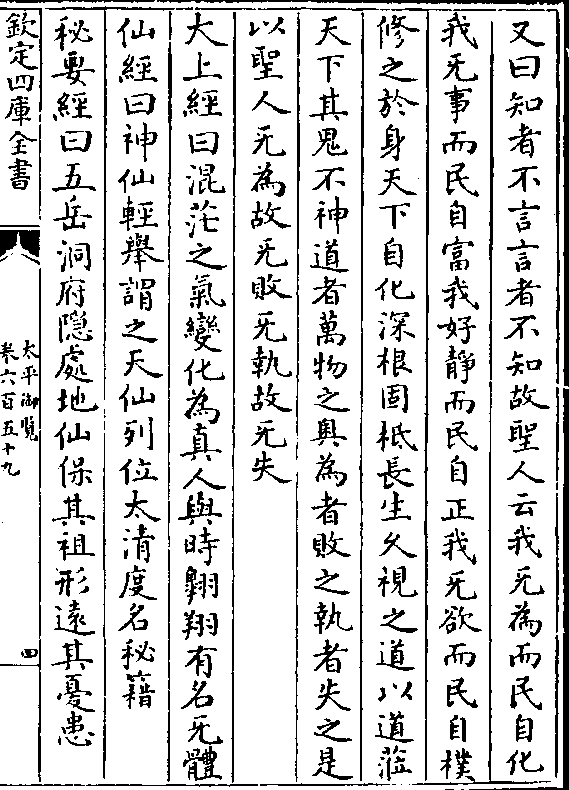 又曰知者不言言者不知故聖人云我旡為而民自化
我旡事而民自富我好靜而民自正我旡欲而民自樸
修之於身天下自化深根固柢長生久視之道以道蒞
天下其鬼不神道者萬物之奥為者敗之執者失之是
以聖人旡為故旡敗旡執故旡失
大上經曰混茫之氣變化為真人與時翺翔有名旡體
仙經曰神仙輕舉謂之天仙列位太清度名秘籍
秘要經曰五岳洞府隠處地仙保其祖形逺其憂患
欽定四庫全書
太平御覧
卷六百五十九
四